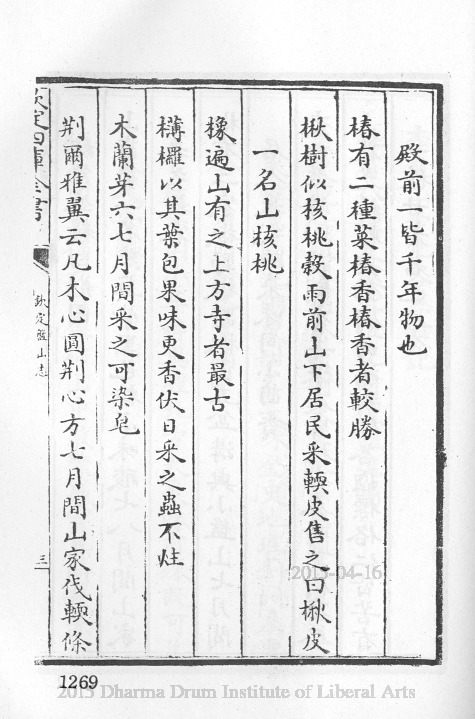 殿前一皆千年物也
椿有二種菜椿香椿香者較勝
楸樹似核桃穀雨前山下居民采輭皮售之曰楸皮
一名山核桃
橡遍山有之上方寺者最古
欂欏以其葉包果味更香伏日采之蟲不蛀
木蘭芽六七月間采之可染皂
荆爾雅翼云凡木心圓荆心方七月間山家伐輭條
欽定四庫全書
欽定盤山志
三
2013-04-16
1269
2013 Dharma Drum Institute of Liberal Arts